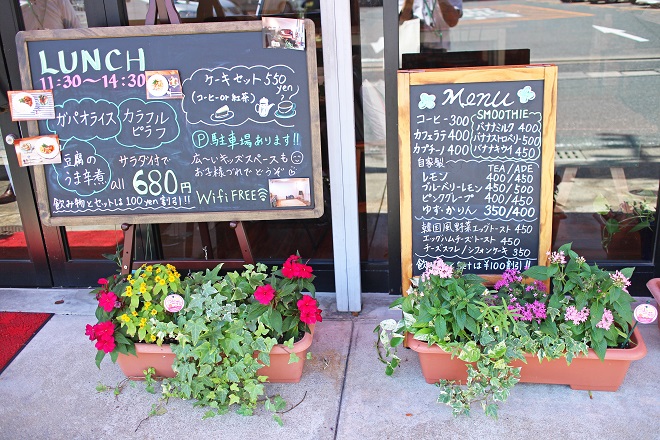 LUNCH
11:30～14:30
ガパオライス
カラフル
ピラフ
豆腐の
うま辛煮
サラダ付で
all 680円
飲み物とセットは100yen割引!!
ケーキセット 550
yen
(コーヒー or 紅茶)
P 駐車場あります!!
広ーいキッズスペースも
お子様づれでどうぞ
Wifi FREE
Menu
コーヒー 300
カフェラテ 400
カプチーノ 400
SMOOTHIE
バナナミルク 400
バナナストロベリー 500
バナナキウイ 450
自家製
TEA/ADE
レモン 400/450
ブルーベリーレモン 450/500
ピンクグレープ 400/450
ゆず・かりん 350/400
韓国風野菜エッグトースト 450
エッグハムチーズトースト 450
チーズスフレ/シフォンケーキ 350
飲物とsetは¥100割引